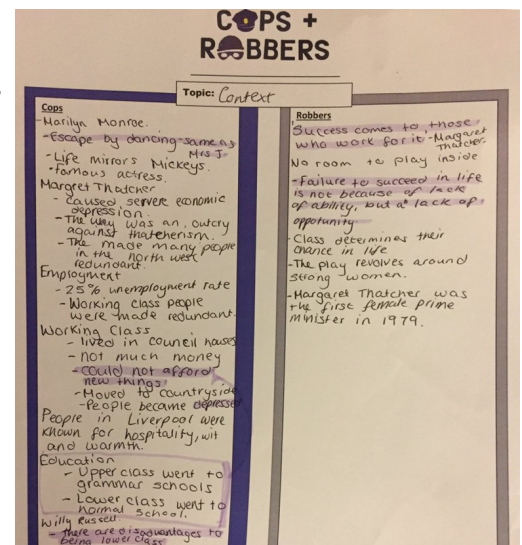 COPS +
ROBBERS
Topic: Context
Cops
-Marilyn Monroe.
-Escape by dancing-same as
Mrs J.
-Life mirrors Mickeys.
-famous actress.
Margret Thatcher
- caused servere economic
depression.
-The play was an outcry
against thatcherism.
-The made many people
in the north west
redundant.
Employment
- 25% unemployment rate
- Working class people
were made redundant.
Working Class
- lived in council houses
- not much money
- could not afford
new things.
-Moved to countryside
-People became depressed
People in Liverpool were
known for hospitality, wit
and warmth.
Education
- Upper class went to
grammar schools
- Lower class went to
normal school.
Willy Russell
- there are disadvantages to
being lower class
Robbers
Success comes to those
who work for it -Margaret
Thatcher
No room to play inside
-Failure to succeed in life
is not because of lack
of ability, but a lack of
oppotunity
-Class determines their
chance in life
-The play revolves around
strong women.
-Margaret Thatcher was
the first female prime
minister in 1979.